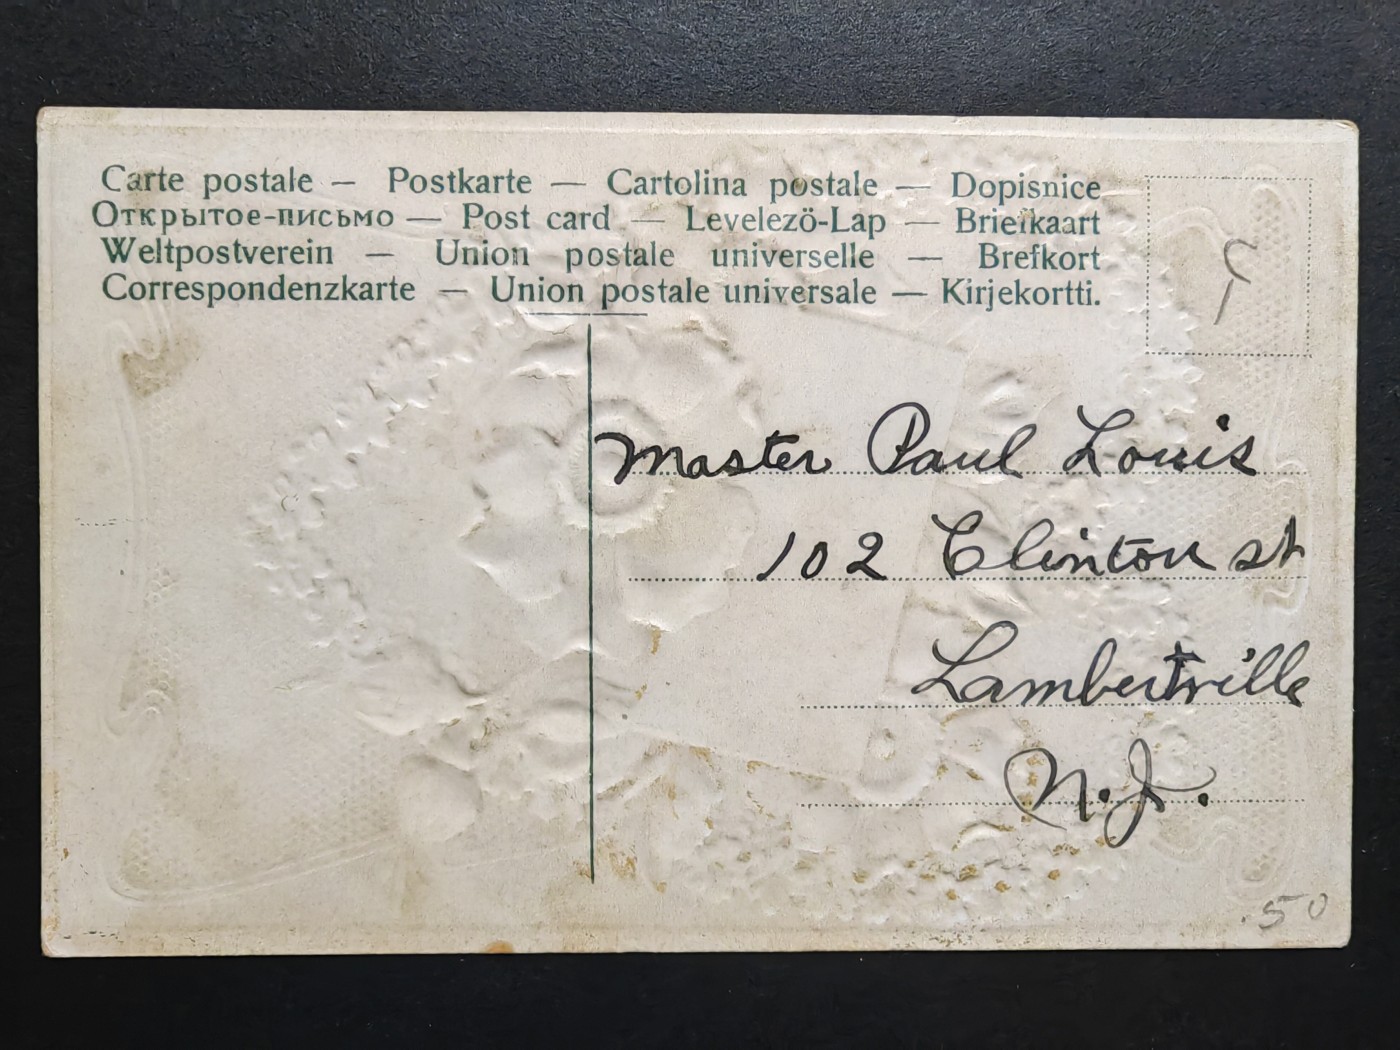 Carte postale — Postkarte — Cartolina postale — Dopisnice
Открытое-письмо — Post card — Levelezö-Lap — Briefkaart
Weltpostverein — Union postale universelle — Brefkort
Correspondenzkarte — Union postale universale — Kirjekortti.
Master Paul Louis
102 Clinton st
Lambertville
N.J.
.50